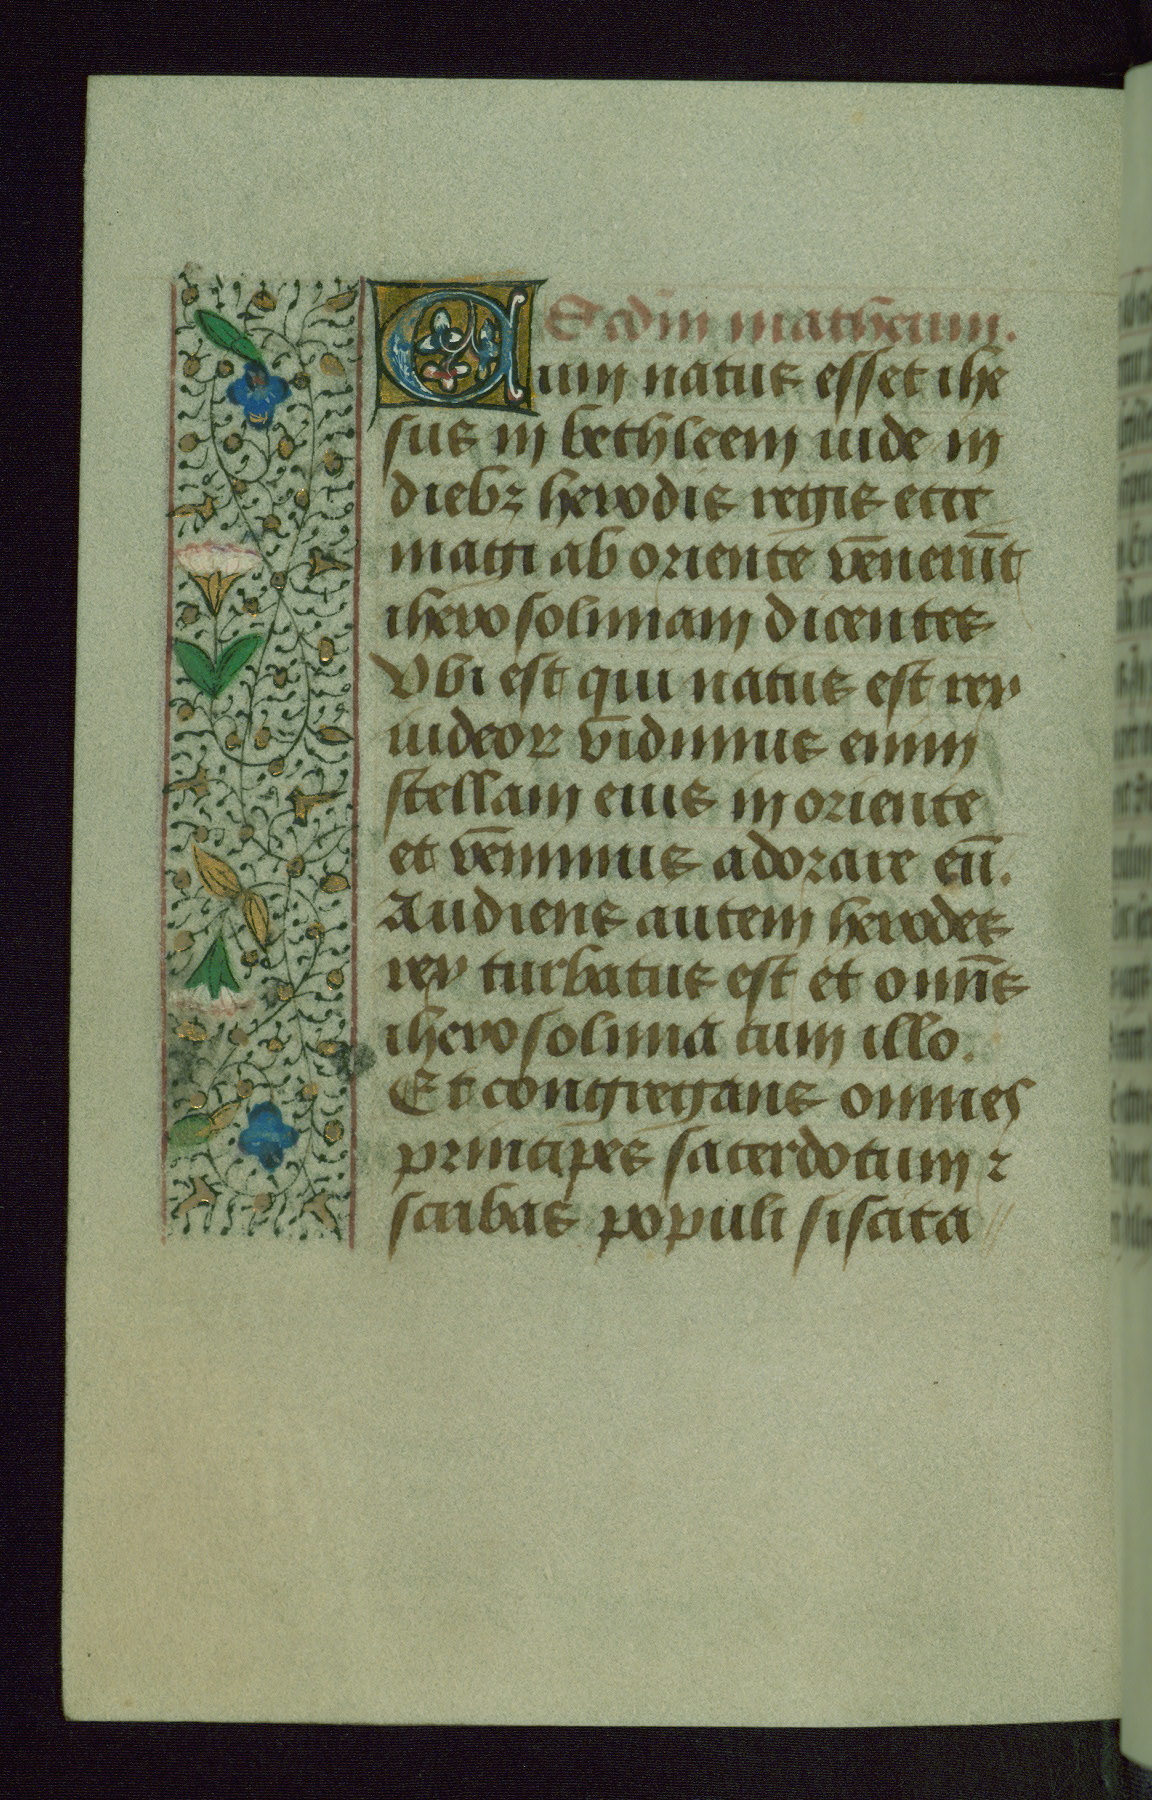 Scdm matheum.
Cum natus esset ihe
sus in bethleem iude in
diebꝫ herodis regis ecce
magi ab oriente venerūt
iherosolimam dicentes
Vbi est qui natus est rex
iudeoꝝ vidimus enim
stellam eius in oriente
et venimus adorare eū.
Audiens autem herodes
rex turbatus est et omīs
iherosolima cum illo.
Et congregans omnes
principes sacerdotum ⁊
scribas populi siscita